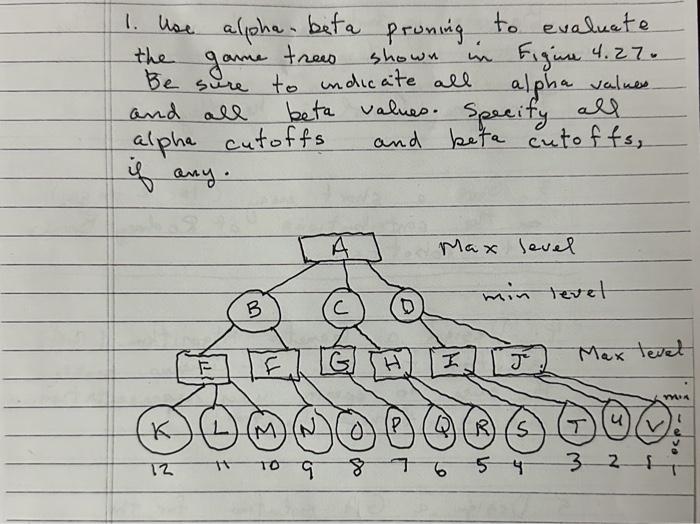 1. Use alpha-beta pruning to evaluate
the game trees shown in Figure 4.27.
Be sure to indicate all alpha values
and all beta values. Specify all
alpha cutoffs and beta cutoffs,
if any.
A Max level
B C D min level
E F G H I J Max level
K L M N O P Q R S T U V min level
12 11 10 9 8 7 6 5 4 3 2 1